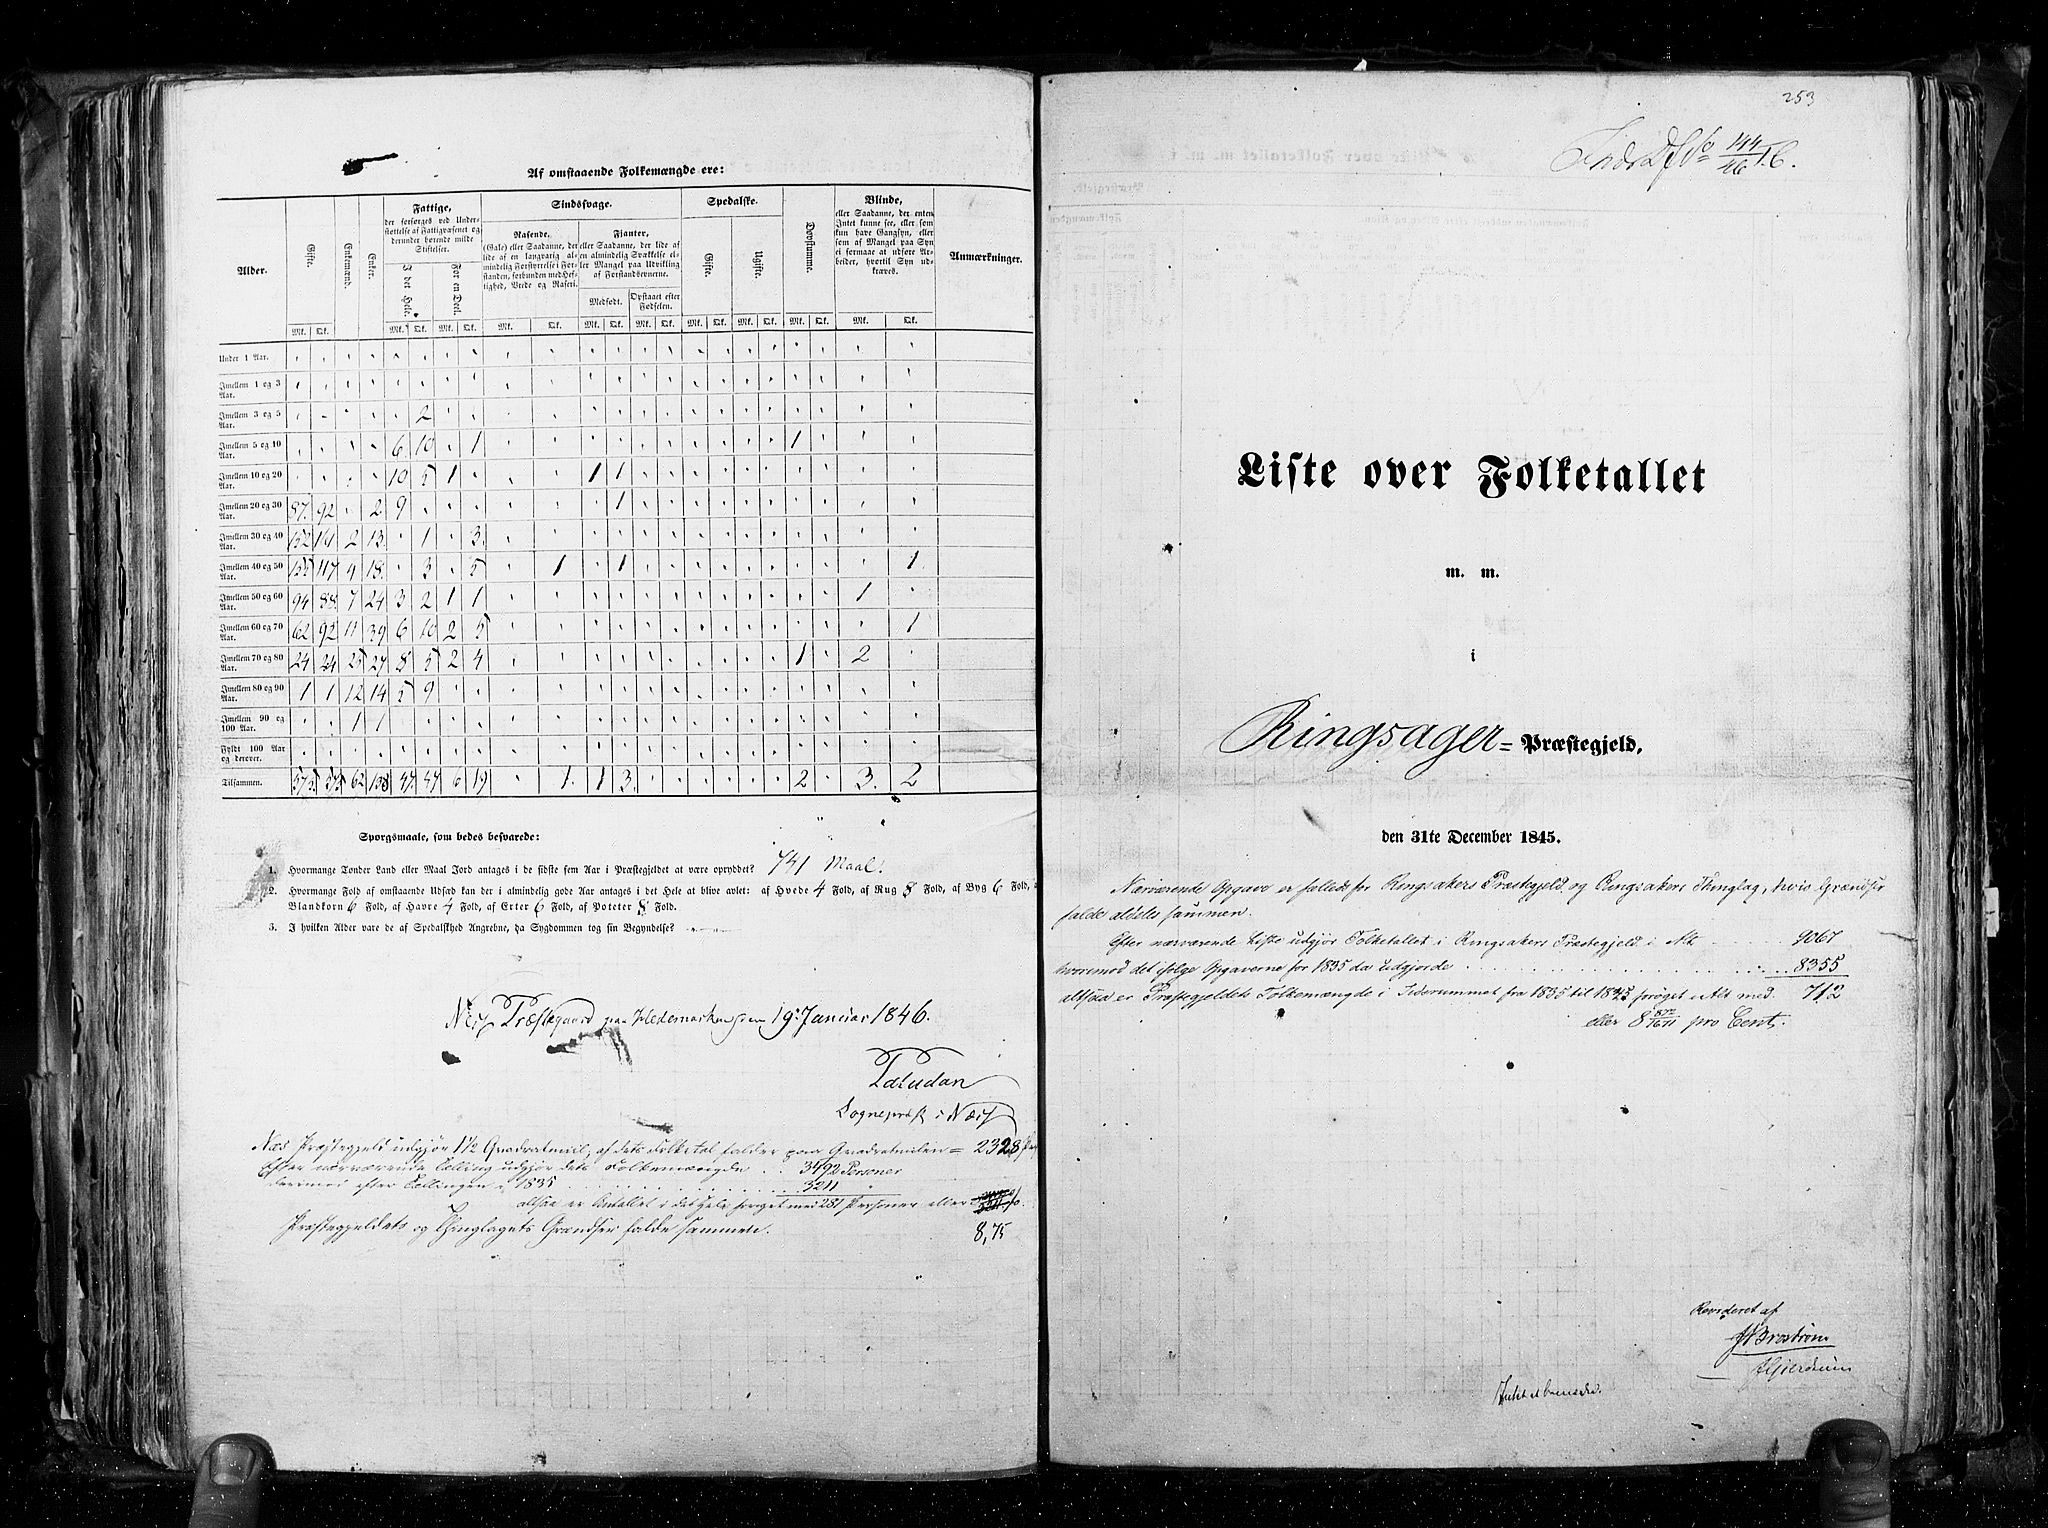 Af omstaaende Folkemængde ere:
Alder. Gifte. Enkemænd. Enker. Fattige, der forsørges ved Understøttelse af Fattigvæsenet og derunder hørende milde Stiftelser. Sindssvage. Spedalske. Døvstumme. Blinde, eller Saadanne, der enten Intet kunne see, eller som kun have Gangsyn, eller som af Mangel paa Syn ei formaae at udføre Arbeider, hvortil Syn udkræves. Anmærkninger.
I det Hele. For en Deel. Rasende, (Gale) eller Saadanne, der lide af en langvarig almindelig Forstyrrelse i Forstanden, forbunden med Heftighed, Vrede og Raseri. Fjanter, eller Saadanne, der lide af en almindelig Svækkelse eller Mangel paa Udvikling af Forstandsevnerne. Gifte. Ugifte.
Medfødt. Opstaaet efter Fødselen.
Mk. Qk. Mk. Qk. Mk. Qk. Mk. Qk. Mk. Qk. Mk. Qk. Mk. Qk. Mk. Qk. Mk. Qk. Mk. Qk.
Under 1 Aar.
Imellem 1 og 3 Aar.
Imellem 3 og 5 Aar. 2
Imellem 5 og 10 Aar. 6 10 1 1
Imellem 10 og 20 Aar. 10 5 1 1 1
Imellem 20 og 30 Aar. 87. 92 2 9 1
Imellem 30 og 40 Aar. 152 161 2 13. 1 3
Imellem 40 og 50 Aar. 155 117 4 18. 3 5 1 1 1
Imellem 50 og 60 Aar. 94 88. 7 24 3 2 1 1 1
Imellem 60 og 70 Aar. 62 92 11 39 6 10 2 5 1
Imellem 70 og 80 Aar. 24 24 25 27 8 5 2 4 1 2
Imellem 80 og 90 Aar. 1 1 12 14 5 9
Imellem 90 og 100 Aar. 1 1
Fyldt 100 Aar og derover.
Tilsammen. 575. 575 62 138 47. 47 6 19 1. 1 3. 2 3. 2
Spørgsmaale, som bedes besvarede:
1. Hvormange Tønder Land eller Maal Jord antages i de sidste fem Aar i Præstegjeldet at være opryddet? 741 Maal.
2. Hvormange Fold af omstaaende Udsæd kan der i almindelig gode Aar antages i det Hele at blive avlet: af Hvede 4 Fold, af Rug 8 Fold, af Byg 6 Fold,
Blandkorn 6 Fold, af Havre 4 Fold, af Erter 6 Fold, af Poteter 8 Fold.
3. I hvilken Alder vare de af Spedalskhed Angrebne, da Sygdommen tog sin Begyndelse?
Næs Præstegaard paa Hedemarken den 19. Januar 1846.
Paludan
Sognepræst i Næs
Næs Præstegjeld udgjør 1½ Quadratmiil, af dets Folketal falder paa Quadratmilen = 2328
Efter nærværende Tælling udgjør dets Folkemængde . . 3492 Personer
derimod efter Tællingen i 1835 3211 "
altsaa er Antallet i det Hele forøget med 281 Personer eller
8,75
Præstegjeldets og Thinglagets Grændser falde sammen.
253
144/46
Liste over Folketallet
m. m.
i
Ringsager = Præstegjeld,
den 31te December 1845.
Nærværende Opgave er fælleds for Ringsakers Præstegjeld og Ringsakers Thinglag, hvis Grændser
falde aldeles sammen.
Efter nærværende Liste udgjør Folketallet i Ringsakers Præstegjeld i Alt 9067
hvorimod det ifølge Opgaverne for 1835 da udgjorde 8355
altsaa er Præstegjeldets Folkemængde i Tidsrummet fra 1835 til 1845 forøget i Alt med. 712
eller 8 872/1671 pro Cent.
Revideret af
Brostrøm
Gjerdrum